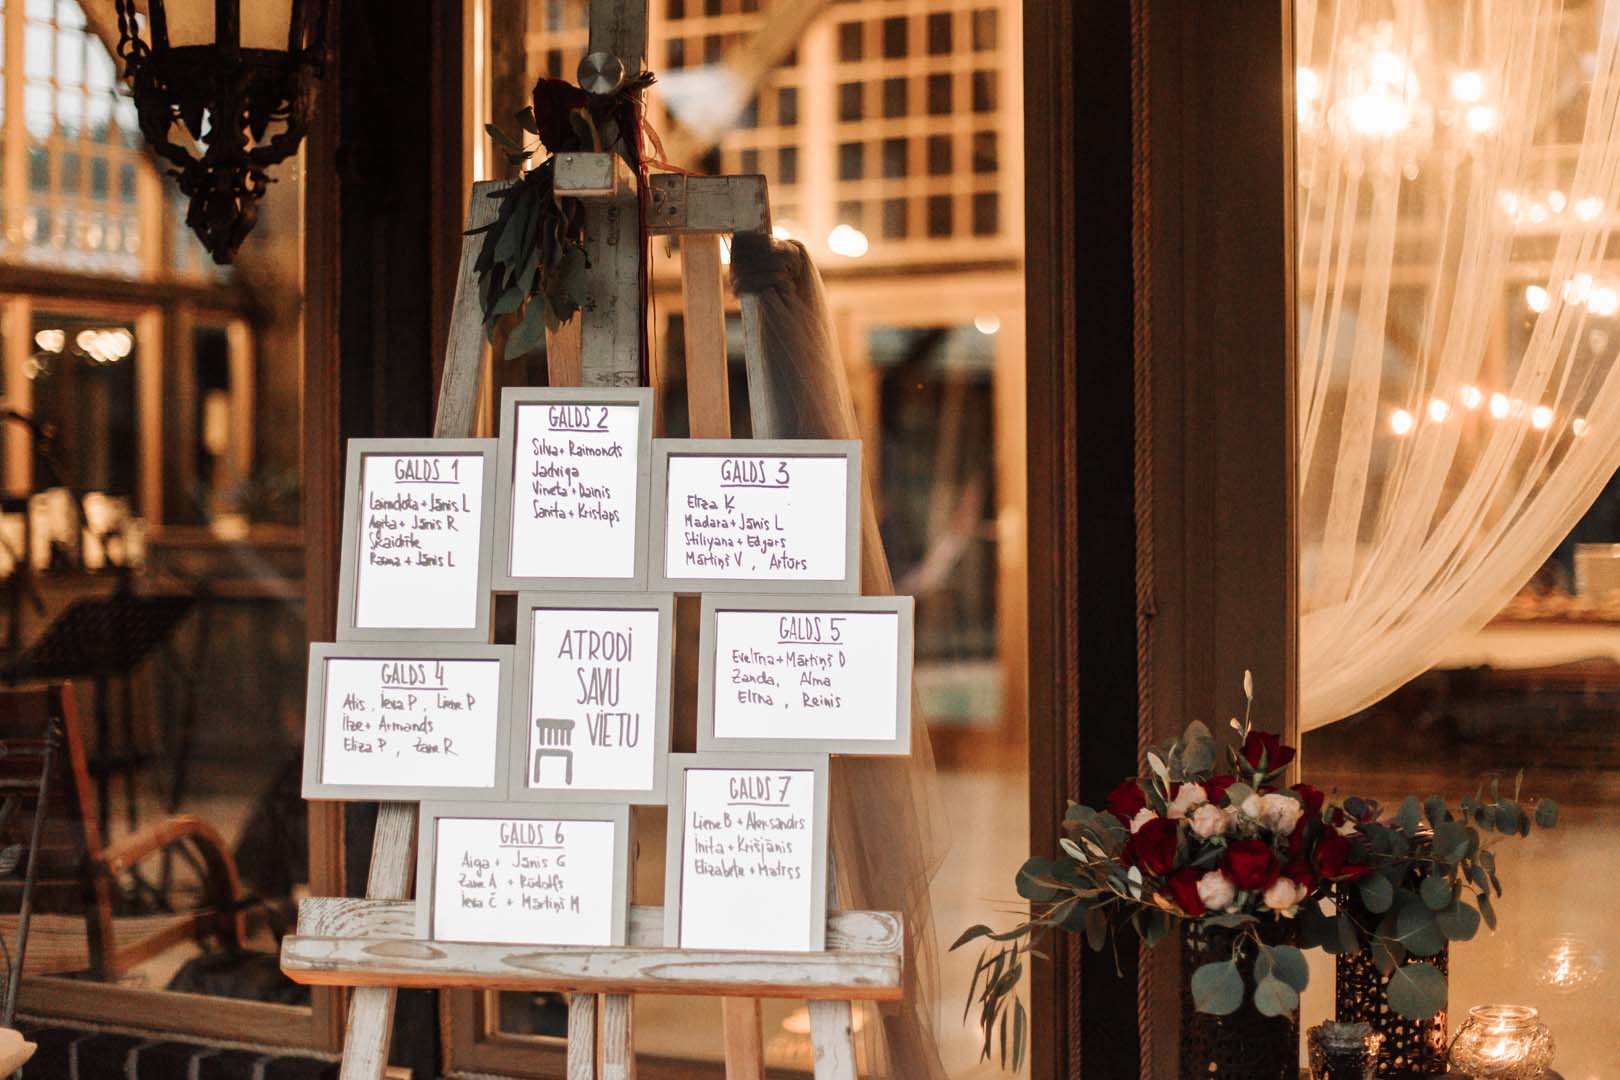 GALDS 1
Laimdota + Jānis L
Agita + Jānis R
Skaidrīte
Rasma + Jānis L
GALDS 2
Silva + Raimonds
Jadviga
Vineta + Dainis
Sanita + Kristaps
GALDS 3
Elīza Ķ
Madara + Jānis L
Stiliyana + Edgars
Mārtiņš V , Artūrs
GALDS 4
Atis , Ieva P , Liene P
Ilze + Armands
Elīza P , Zane R
ATRODI
SAVU
VIETU
GALDS 5
Evelīna + Mārtiņš D
Zanda, Alma
Elīna , Reinis
GALDS 6
Aiga + Jānis G
Zane A + Rūdolfs
Ieva Č + Mārtiņš M
GALDS 7
Liene B + Aleksandrs
Inita + Krišjānis
Elizabete + Matīss